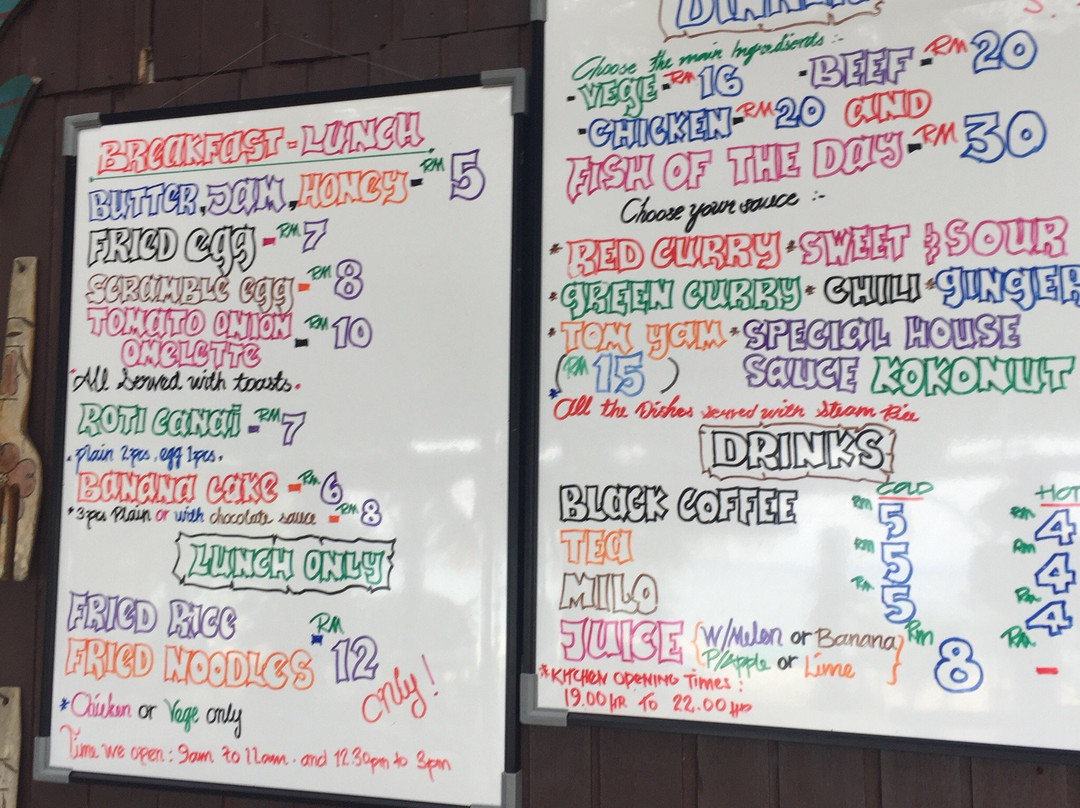 BREAKFAST - LUNCH
BUTTER, JAM, HONEY - RM 5
FRIED EGG - RM 7
SCRAMBLE EGG - RM 8
TOMATO ONION
OMELETTE - RM 10
*All Served with toasts.
ROTI CANAI - RM 7
. plain 2pcs, egg 1pcs.
BANANA CAKE - RM 6
*3pcs Plain or with chocolate sauce - RM 8
LUNCH ONLY
FRIED RICE
FRIED NOODLES RM 12 only!
*Chicken or Vege only
Time we open : 9am to 11am . and 12.30pm to 3pm
DINNER
Choose the main Ingredients :-
- VEGE - RM 16 - BEEF - RM 20
- CHICKEN - RM 20 AND
FISH OF THE DAY - RM 30
Choose your sauce :-
* RED CURRY * SWEET & SOUR
* GREEN CURRY * CHILI * GINGER
* TOM YAM * SPECIAL HOUSE
(RM 15) SAUCE KOKONUT
* All the Dishes served with Steam Rice
DRINKS
COLD HOT
BLACK COFFEE RM 5 RM 4
TEA RM 5 RM 4
MILO RM 5 RM 4
JUICE { W/Melon or Banana } RM 8 RM -
P/Apple or Lime
*KITCHEN OPENING Times :
19.00 HR TO 22.00 HR